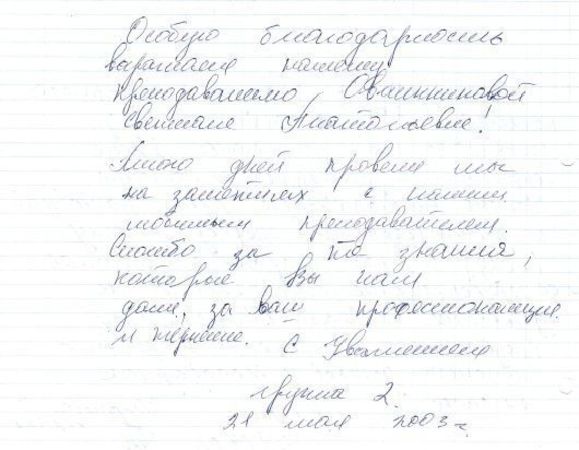 Особую благодарность
выражаем нашему
преподавателю Овчинниковой
Светлане Анатольевне!
Много дней провели мы
на занятиях с нашим
любимым преподавателем.
Спасибо за те знания,
которые Вы нам
дали, за ваш профессионализм
и терпение. С Уважением
группа 2.
21 мая 2003 г.